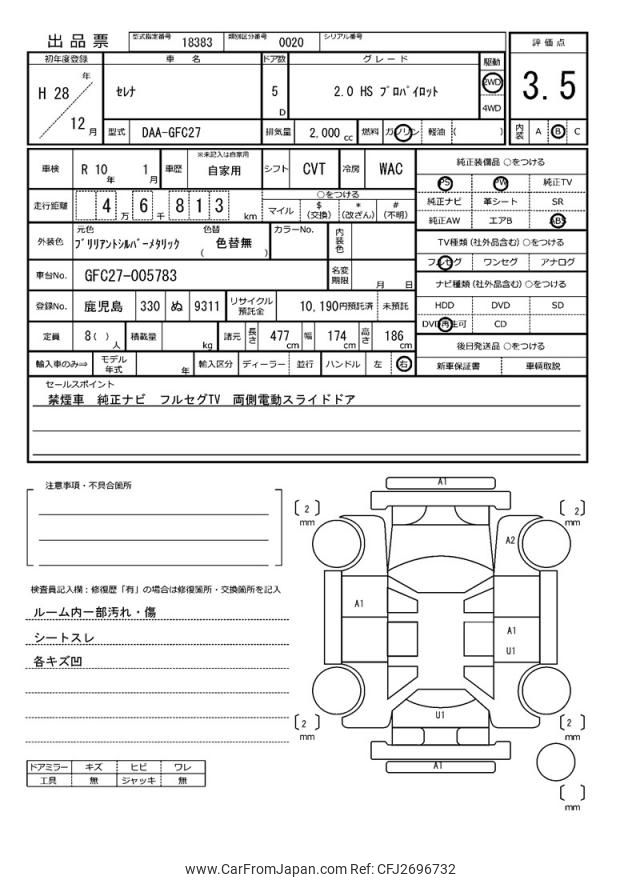 出品票 型式指定番号 18383 類別区分番号 0020 シリアル番号
初年度登録 車名 ドア数 グレード 駆動 評価点
H 28 年 12 月 セレナ 5 D 2.0 HS プロパイロット 2WD 4WD 3.5
型式 DAA-GFC27 排気量 2,000 cc 燃料 ガソリン 軽油 ( ) 内装 A B C
車検 R 10 年 1 月 車歴 ※未記入は自家用 自家用 シフト CVT 冷房 WAC
走行距離 4 万 6 千 8 1 3 km ○をつける マイル $ (交換) * (改ざん) # (不明)
外装色 元色 ブリリアントシルバーメタリック 色替 ( 色替無 ) カラーNo. 内装色
車台No. GFC27-005783 名変期限 月 日
登録No. 鹿児島 330 ぬ 9311 リサイクル預託金 10,190円預託済 未預託
定員 8( ) 人 積載量 kg 諸元 長さ 477 cm 幅 174 cm 高さ 186 cm
輸入車のみ⇒ モデル年式 年 輸入区分 ディーラー 並行 ハンドル 左 右
純正装備品 ○をつける
PS PW 純正TV
純正ナビ 革シート SR
純正AW エアB ABS
TV種類 (社外品含む) ○をつける
フルセグ ワンセグ アナログ
ナビ種類 (社外品含む) ○をつける
HDD DVD SD
DVD再生可 CD
後日発送品 ○をつける
新車保証書 車輌取説
セールスポイント
禁煙車 純正ナビ フルセグTV 両側電動スライドドア
注意事項・不具合箇所
検査員記入欄：修復歴「有」の場合は修復箇所・交換箇所を記入
ルーム内一部汚れ・傷
シートスレ
各キズ凹
ドアミラー キズ ヒビ ワレ
工具 無 ジャッキ 無
A1
[ 2 ] mm
[ 2 ] mm
A2
A1
A1
U1
U1
[ 2 ] mm
[ 2 ] mm
A1
[ ] mm
www.CarFromJapan.com Ref: CFJ2696732